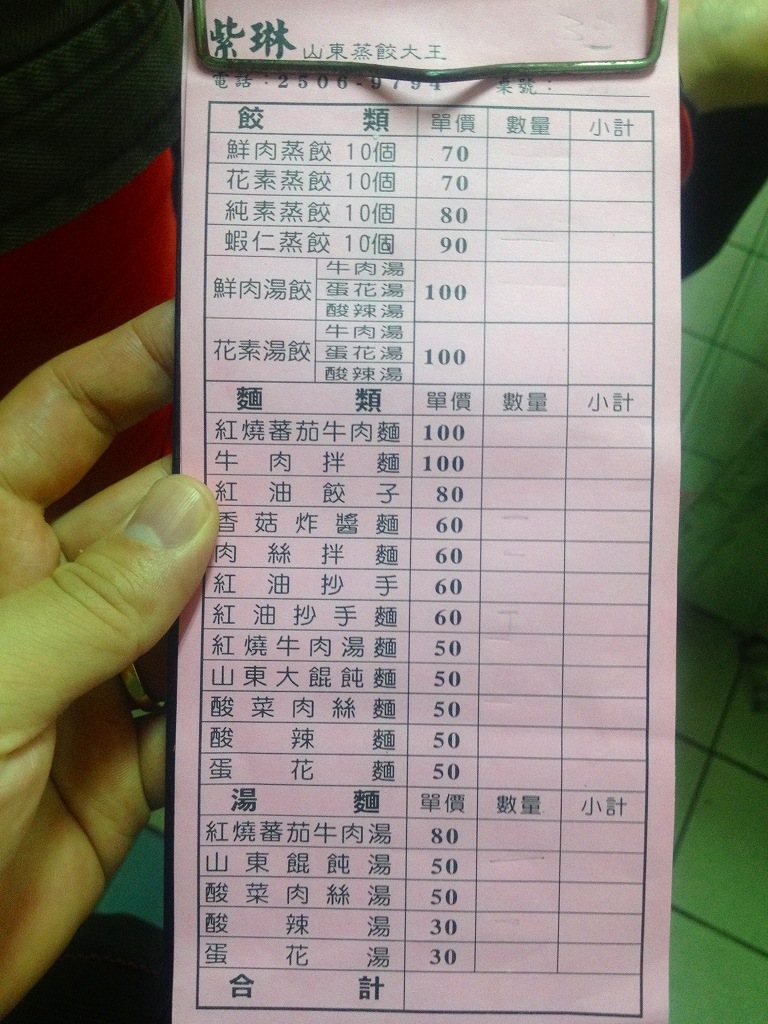 紫琳 山東蒸餃大王
電話：2506-9794 桌號：
餃類 單價 數量 小計
鮮肉蒸餃 10個 70
花素蒸餃 10個 70
純素蒸餃 10個 80
蝦仁蒸餃 10個 90
鮮肉湯餃 牛肉湯 蛋花湯 酸辣湯 100
花素湯餃 牛肉湯 蛋花湯 酸辣湯 100
麵類 單價 數量 小計
紅燒蕃茄牛肉麵 100
牛肉拌麵 100
紅油餃子 80
香菇炸醬麵 60
肉絲拌麵 60
紅油抄手 60
紅油抄手麵 60
紅燒牛肉湯麵 50
山東大餛飩麵 50
酸菜肉絲麵 50
酸辣麵 50
蛋花麵 50
湯麵 單價 數量 小計
紅燒蕃茄牛肉湯 80
山東餛飩湯 50
酸菜肉絲湯 50
酸辣湯 30
蛋花湯 30
合計